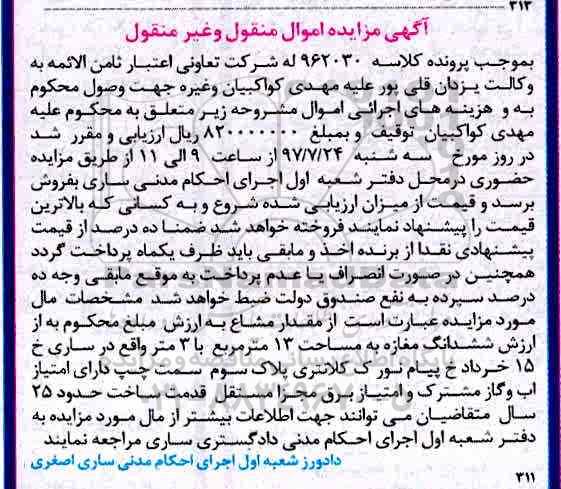 ۳۱۳
آگهی مزایده اموال منقول وغیر منقول
بموجب پرونده کلاسه ۹۶۲۰۳۰ له شرکت تعاونی اعتبار ثامن الائمه به
وکالت یزدان قلی پور علیه مهدی کواکبیان وغیره جهت وصول محکوم
به و هزینه های اجرائی اموال مشروحه زیر متعلق به محکوم علیه
مهدی کواکبیان توقیف و بمبلغ ۸۲۰۰۰۰۰۰۰ ریال ارزیابی و مقرر شد
در روز مورخ سه شنبه ۹۷/۷/۲۴ از ساعت ۹ الی ۱۱ از طریق مزایده
حضوری درمحل دفتر شعبه اول اجرای احکام مدنی ساری بفروش
برسد و قیمت از میزان ارزیابی شده شروع و به کسانی که بالاترین
قیمت را پیشنهاد نمایند فروخته خواهد شد ضمنا ده درصد از قیمت
پیشنهادی نقدا از برنده اخذ و مابقی باید ظرف یکماه پرداخت گردد
همچنین در صورت انصراف یا عدم پرداخت به موقع مابقی وجه ده
درصد سپرده به نفع صندوق دولت ضبط خواهد شد مشخصات مال
مورد مزایده عبارت است از مقدار مشاع به ارزش مبلغ محکوم به از
ارزش ششدانگ مغازه به مساحت ۱۳ مترمربع با ۳ متر واقع در ساری خ
۱۵ خرداد خ پیام نور ک کلانتری پلاک سوم سمت چپ دارای امتیاز
اب وگاز مشترک و امتیاز برق مجزا مستقل قدمت ساخت حدود ۲۵
سال متقاضیان می توانند جهت اطلاعات بیشتر از مال مورد مزایده به
دفتر شعبه اول اجرای احکام مدنی دادگستری ساری مراجعه نمایند
دادورز شعبه اول اجرای احکام مدنی ساری اصغری
۳۱۱